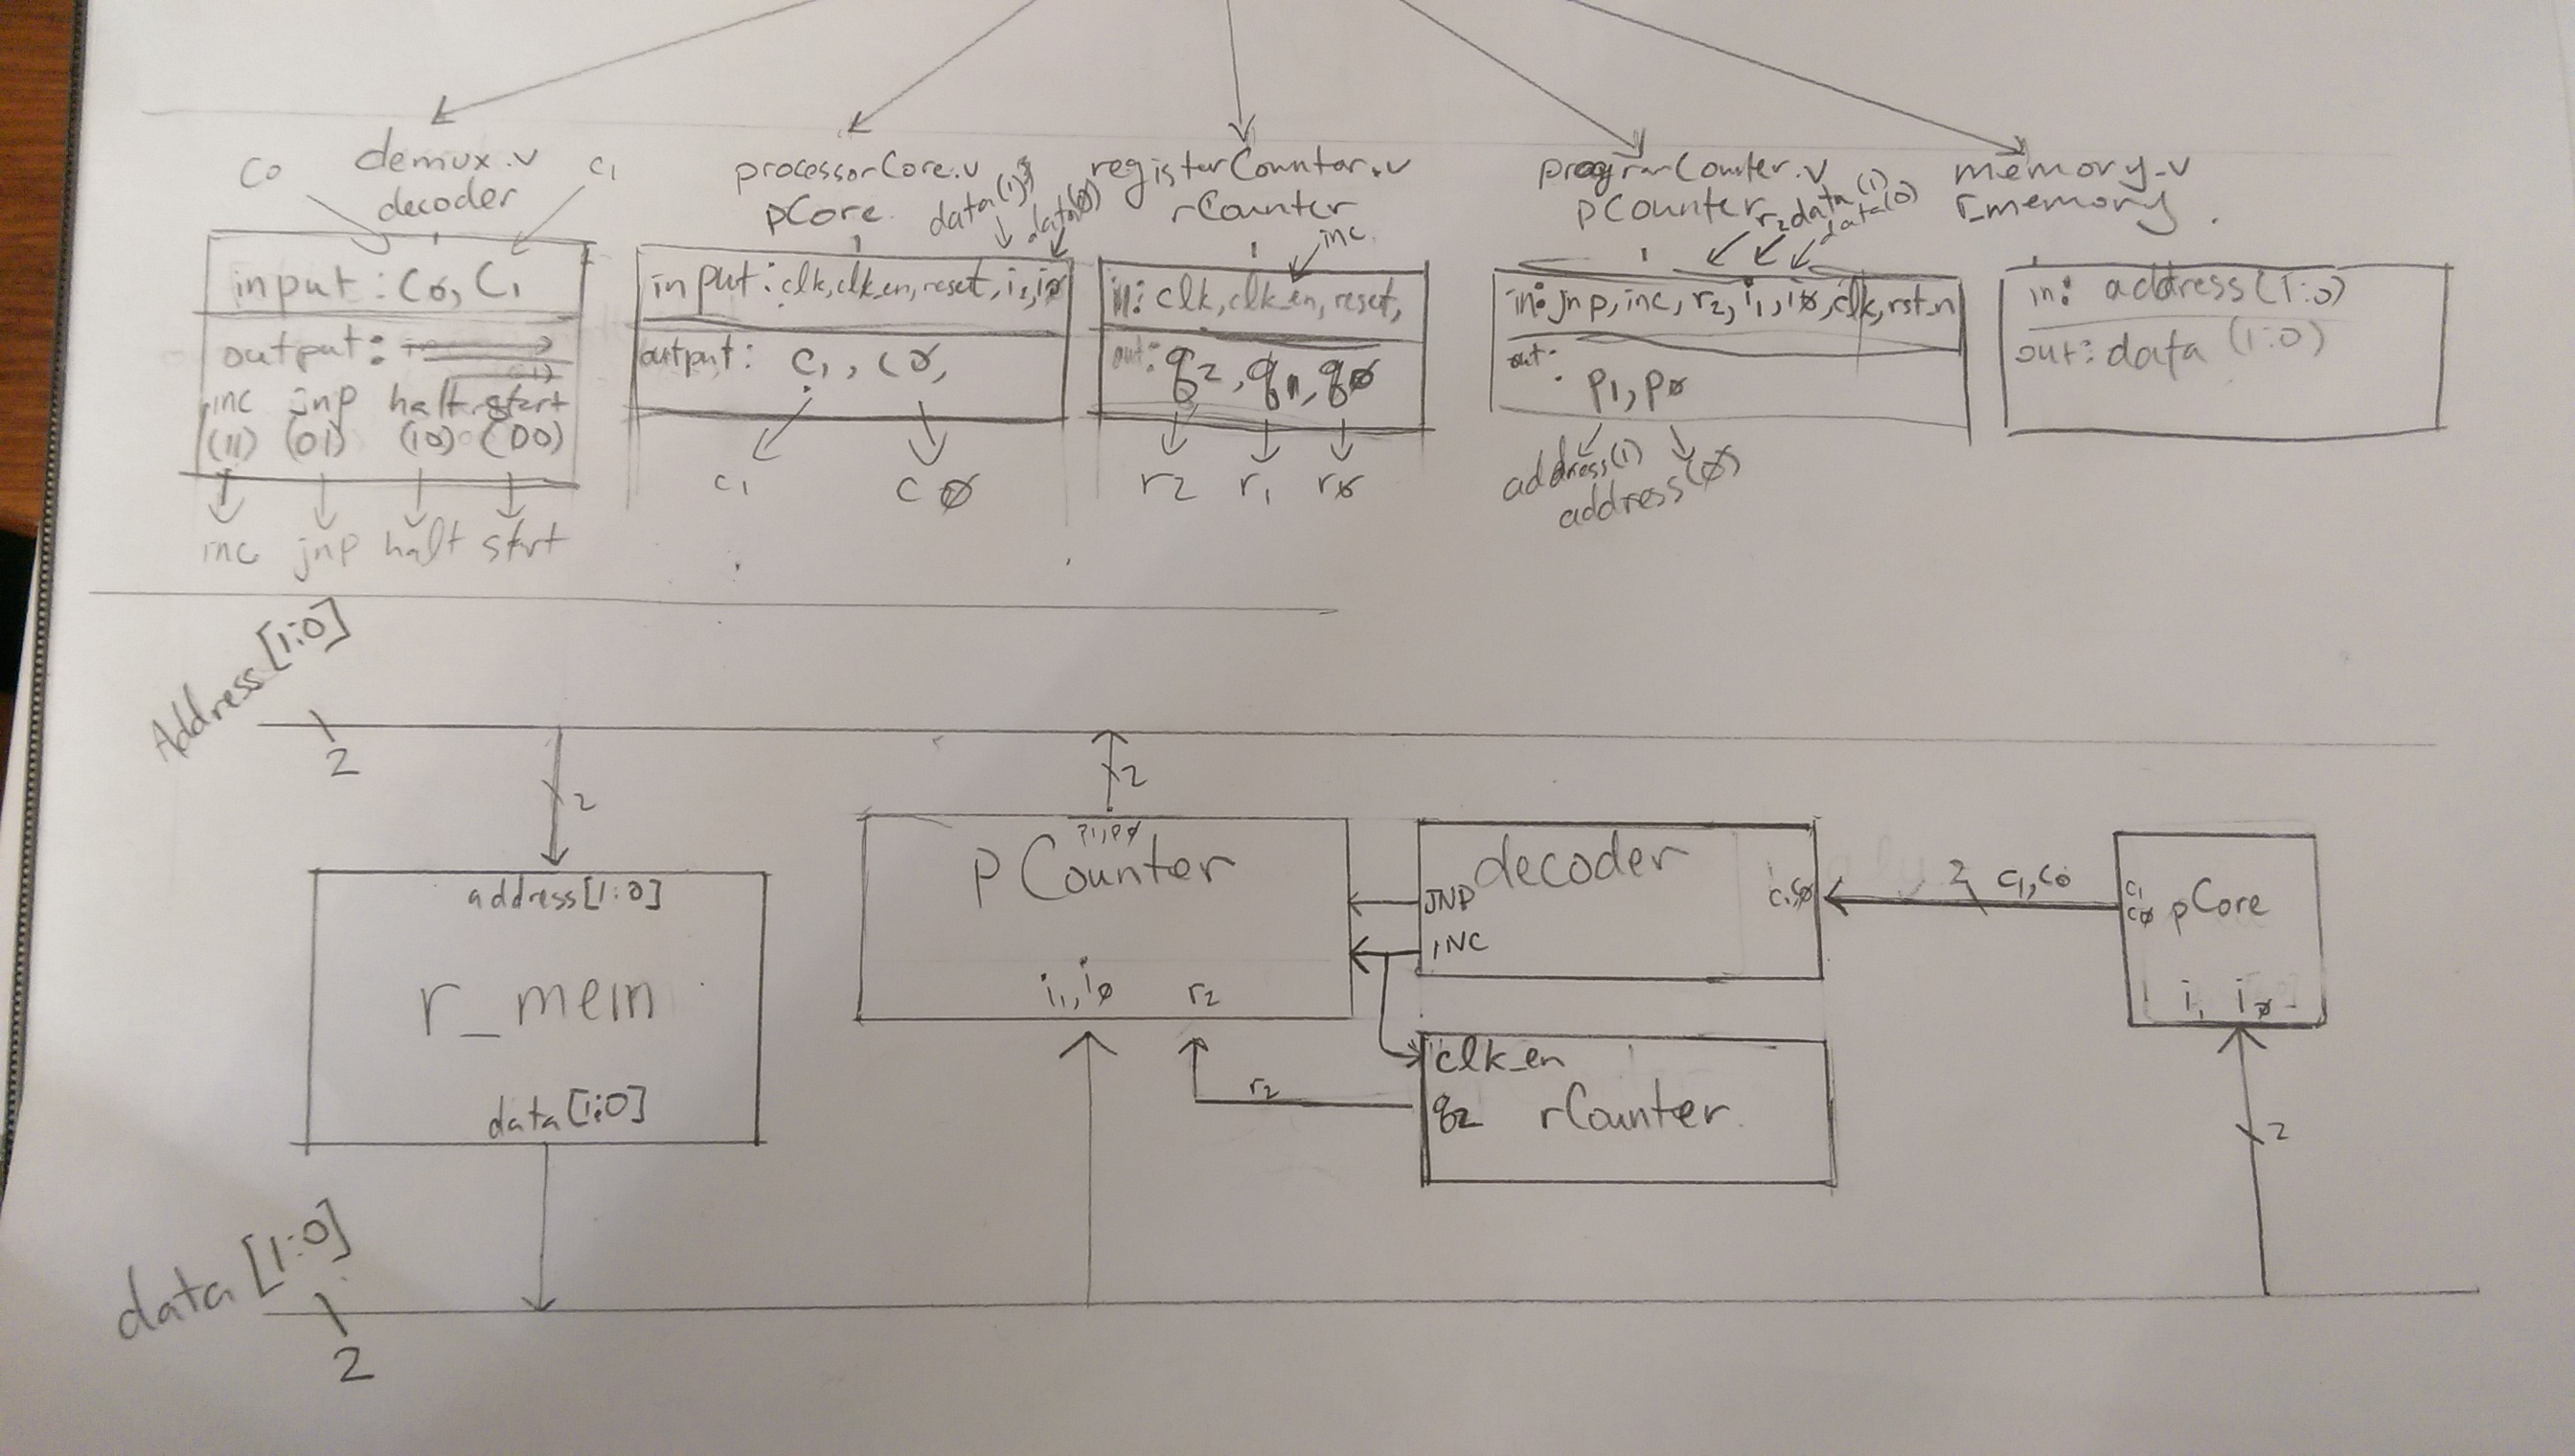 demux.v
decoder
c0
c1
input: C0, C1
output:
inc jnp halt start
(11) (01) (10) (00)
inc jnp halt start
processorCore.v
pCore
data(1)
data(0)
input: clk, clk_en, reset, i1, i0
output: c1, c0,
c1 c0
registerCounter.v
rCounter
inc
in: clk, clk_en, reset,
out: q2, q1, q0
r2 r1 r0
programCounter.v
pCounter
r2 data(1)
data(0)
in: jnp, inc, r2, i1, i0, clk, rst_n
out: p1, p0
address(1)
address(0)
memory.v
r_memory
in: address(1:0)
out: data (1:0)
Address[1:0]
2
2
2
address[1:0]
r_mem
data[1:0]
p1, p0
PCounter
i1, i0 r2
decoder
JNP
INC
c1, c0
2 c1, c0
c1
c0 pCore
i1 i0
clk_en
q2 rCounter
r2
2
data[1:0]
2